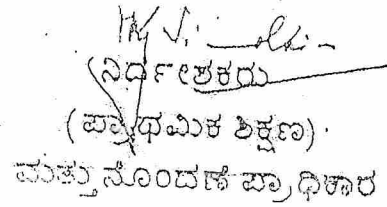 (ನಿರ್ದೇಶಕರು
(ಪ್ರಾಥಮಿಕ ಶಿಕ್ಷಣ)
ಮತ್ತು ನೊಂದಣಿ ಪ್ರಾಧಿಕಾರ